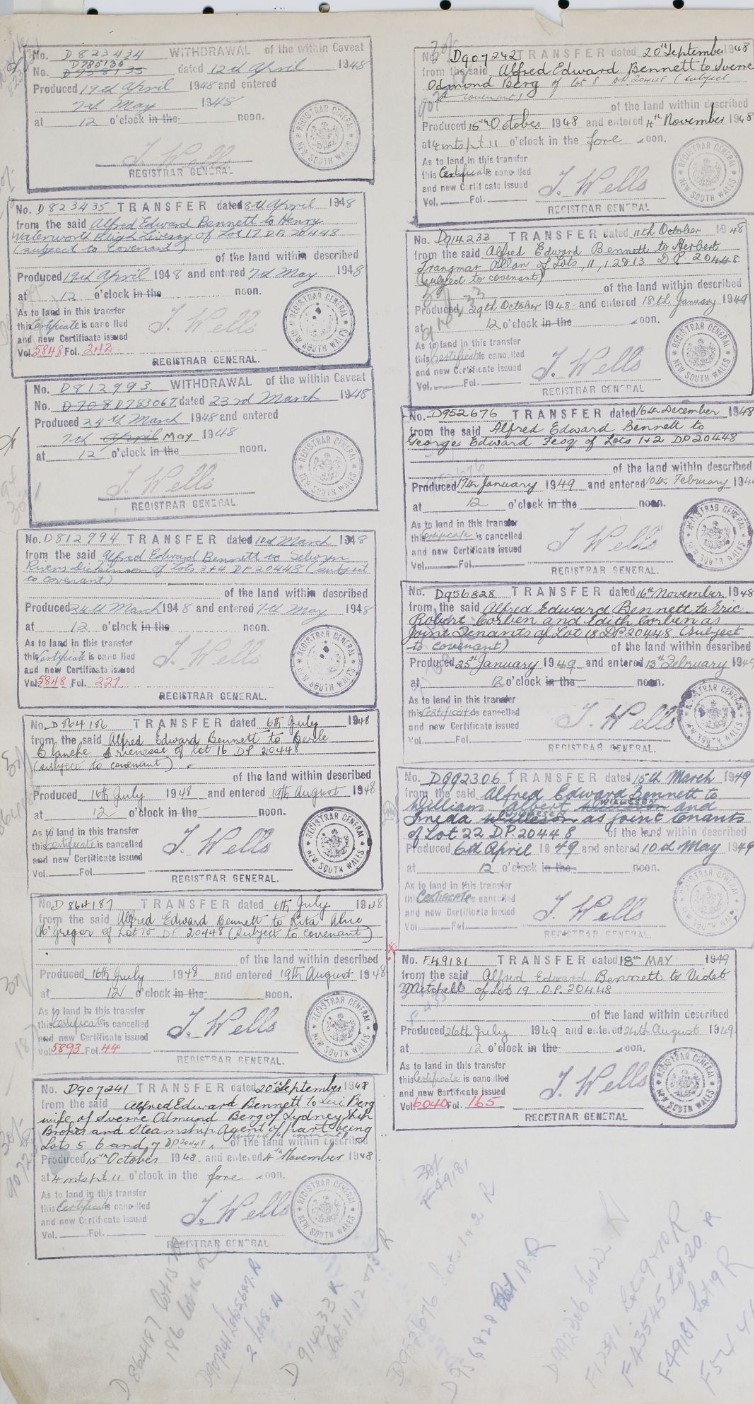 No. D823434 WITHDRAWAL of the within Caveat
D783136
No. D758135 dated 12th April 1948
Produced 19th April 1948 and entered
7th May 1948
at 12 o'clock in the noon.
J. Wells
REGISTRAR GENERAL.
No. D823435 TRANSFER dated 8th April 1948
from the said Alfred Edward Bennett to Henry
Waterworth of Lot 17 D.P. 20448
(subject to Covenant)
of the land within described
Produced 19th April 1948 and entered 7th May 1948
at 12 o'clock in the noon.
As to land in this transfer
this Certificate is cancelled
and new Certificate issued
Vol. 5848 Fol. 242
J. Wells
REGISTRAR GENERAL.
No. D812993 WITHDRAWAL of the within Caveat
No. D708 D783067 dated 23rd March 1948
Produced 24th March 1948 and entered
7th April May 1948
at 12 o'clock in the noon.
J. Wells
REGISTRAR GENERAL.
No. D812994 TRANSFER dated March 1948
from the said Alfred Edward Bennett to Selwyn
Rivers of Lots 3 & 4 DP 20448 (subject
to covenant)
of the land within described
Produced 24th March 1948 and entered 7th May 1948
at 12 o'clock in the noon.
As to land in this transfer
this Certificate is cancelled
and new Certificate issued
Vol. 5848 Fol. 227
J. Wells
REGISTRAR GENERAL.
No. D864186 TRANSFER dated 6th July 1948
from the said Alfred Edward Bennett to
Blanche of Lot 16 DP 20448
(subject to covenant)
of the land within described
Produced 16th July 1948 and entered 19th August 1948
at 12 o'clock in the noon.
As to land in this transfer
this Certificate is cancelled
and new Certificate issued
Vol. Fol.
J. Wells
REGISTRAR GENERAL.
No. D864187 TRANSFER dated 6th July 1948
from the said Alfred Edward Bennett to Rita Alice
McGregor of Lot 15 DP 20448 (subject to covenant)
of the land within described
Produced 16th July 1948 and entered 19th August 1948
at 12 o'clock in the noon.
As to land in this transfer
this Certificate is cancelled
and new Certificate issued
Vol. 5893 Fol. 44
J. Wells
REGISTRAR GENERAL.
No. D907241 TRANSFER dated 20th September 1948
from the said Alfred Edward Bennett to Berg
wife of Sverre Odmund Berg of Sydney Ship
Broker and Steamship Agent of part being
Lots 5 6 and 7 DP 20448 of the land within described
Produced 15th October 1948 and entered 4th November 1948
at 4 mts pt 11 o'clock in the fore noon.
As to land in this transfer
this Certificate cancelled
and new Certificate issued
Vol. Fol.
J. Wells
REGISTRAR GENERAL.
No. D907242 TRANSFER dated 20th September 1948
from the said Alfred Edward Bennett to Sverre
Odmond Berg of Lot 8 DP 20448 (subject
covenant)
of the land within described
Produced 15th October 1948 and entered 4th November 1948
at 4 mts pt 11 o'clock in the fore noon.
As to land in this transfer
this Certificate cancelled
and new Certificate issued
Vol. Fol.
J. Wells
REGISTRAR GENERAL.
No. D914233 TRANSFER dated 11th October 1948
from the said Alfred Edward Bennett to Herbert
Trangmar Allan of Lots, 11, 12 & 13 D.P. 20448
(subject to covenant)
of the land within described
Produced 29th October 1948 and entered 18th January 1949
at 12 o'clock in the noon.
As to land in this transfer
this Certificate cancelled
and new Certificate issued
Vol. Fol.
J. Wells
REGISTRAR GENERAL.
No. D952676 TRANSFER dated 16th December 1948
from the said Alfred Edward Bennett to
George Edward Fesq of Lots 1 & 2 DP 20448
of the land within described
Produced 17th January 1949 and entered 10th February 194
at 12 o'clock in the noon.
As to land in this transfer
this Certificate is cancelled
and new Certificate issued
Vol. Fol.
J. Wells
REGISTRAR GENERAL.
No. D956828 TRANSFER dated 16th November 1948
from the said Alfred Edward Bennett to Eric
Robert Corben and Edith Corben as
Joint Tenants of Lot 18 D.P. 20448 (subject
to covenant) of the land within described
Produced 25th January 1949 and entered 15th February 1949
at 12 o'clock in the noon.
As to land in this transfer
this Certificate is cancelled
and new Certificate issued
Vol. Fol.
J. Wells
REGISTRAR GENERAL.
No. D992306 TRANSFER dated 15th March 1949
from the said Alfred Edward Bennett to
William Albert and
as joint tenants
of Lot 22 D.P. 20448 of the land within described
Produced 6th April 1949 and entered 10th May 1949
at 12 o'clock in the noon.
As to land in this transfer
this Certificate
and new Certificate issued
Vol. Fol.
J. Wells
REGISTRAR GENERAL.
No. F49181 TRANSFER dated 18th MAY 1949
from the said Alfred Edward Bennett to Violet
Mitchell of Lot 19. D.P. 20448
of the land within described
Produced 26th July 1949 and entered 24th August 1949
at 12 o'clock in the noon.
As to land in this transfer
this Certificate is cancelled
and new Certificate issued
Vol. 6040 Fol. 165
J. Wells
REGISTRAR GENERAL.
F49181
D864187 Lot 15 R
186 Lot 16 R
D907241 Lots 5 6 & 7 R
2 Lots 8 R
D914233 R
Lots 11 12 & 13 R
D952676 Lots 1 & 2 R
D956828 Lot 18 R
D992306 Lot 22 R
F12311 Lots 9 & 10 R
F43545 Lot 20 R
F49181 Lot 19 R